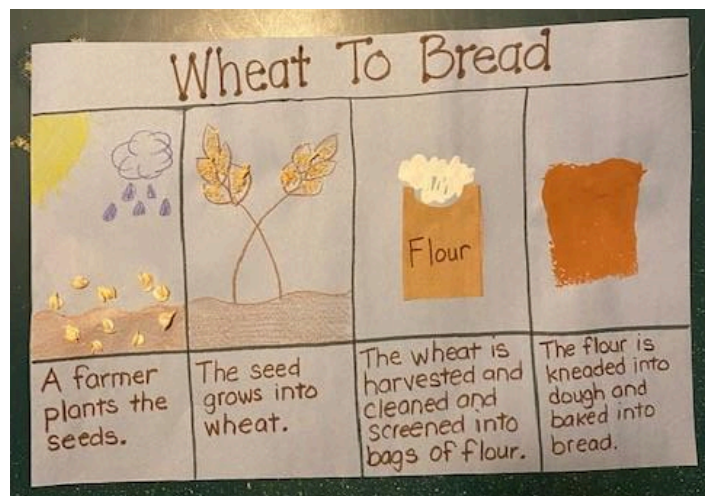 Wheat To Bread
Flour
A farmer
plants the
seeds.
The seed
grows into
wheat.
The wheat is
harvested and
cleaned and
screened into
bags of flour.
The flour is
kneaded into
dough and
baked into
bread.